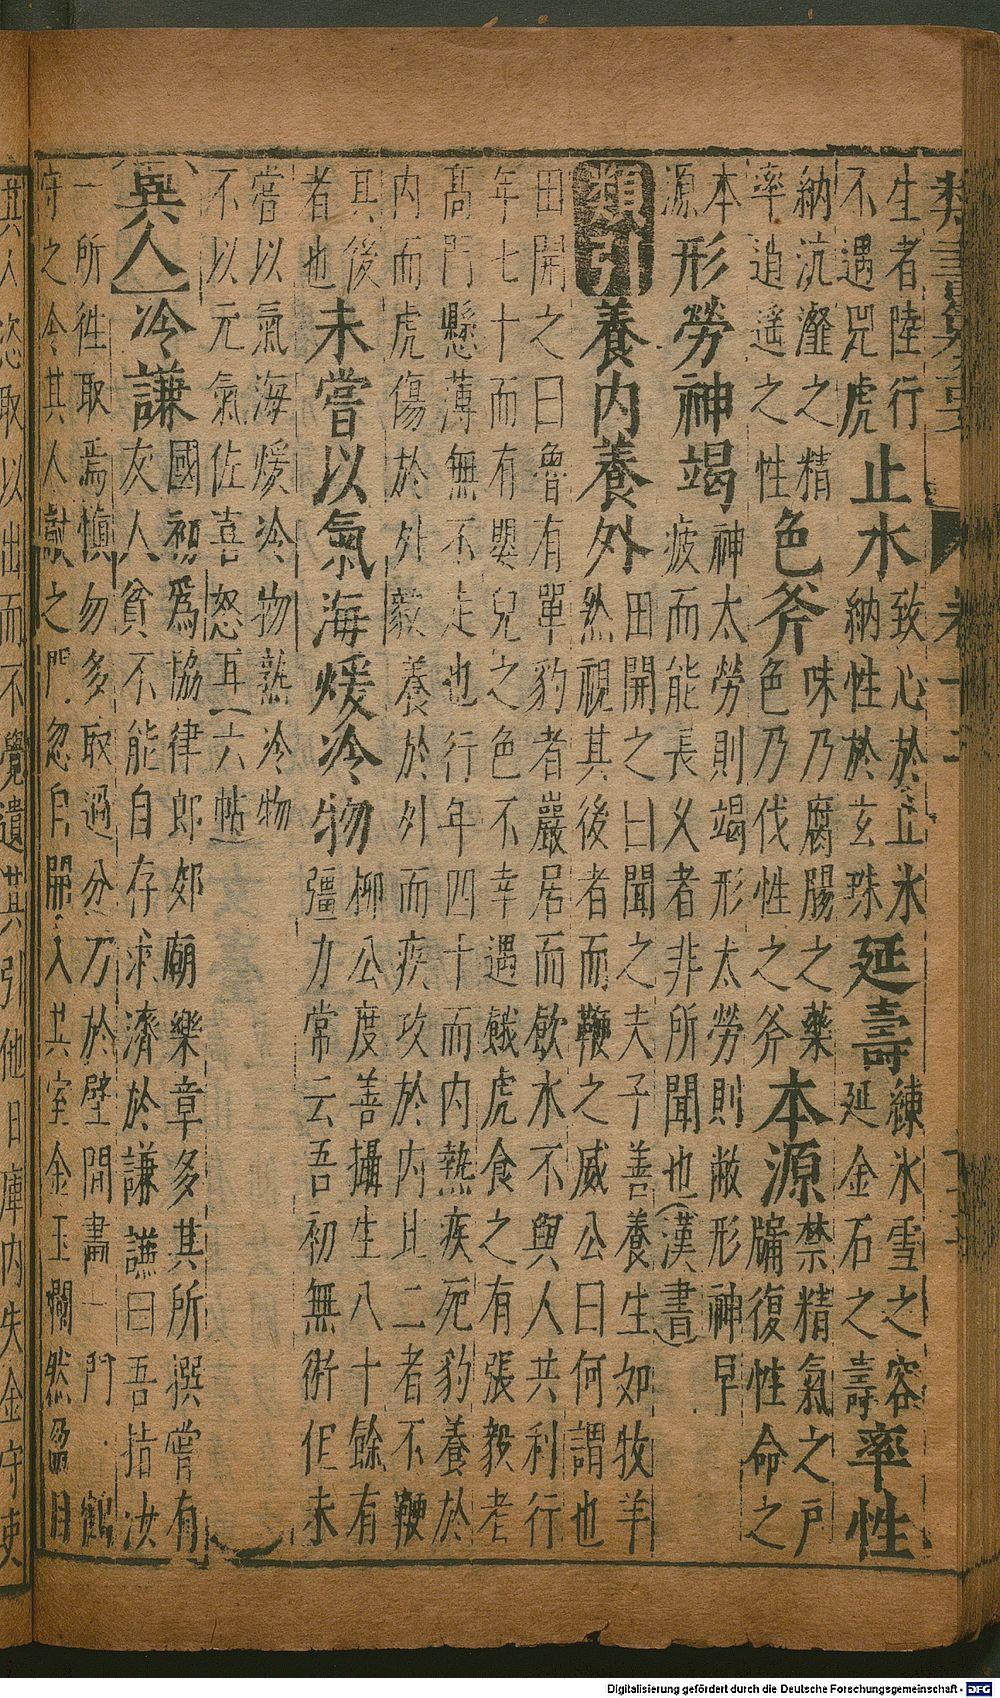 類書纂要
生者陸行
不遇兕虎
止水
致心於止水
納性於玄珠
延壽
練氷雪之容
延金石之壽
率性
納沆瀣之精
率逍遙之性
色斧
味乃腐腸之藥
色乃伐性之斧
本源
禁精氣之戶
牖復性命之
本
源
形勞神竭
神太勞則竭形太勞則敝形神早
疲而能長乆者非所聞也(漢書)
類引
養内養外
田開之曰聞之夫子善養生如牧羊
然視其後者而鞭之威公曰何謂也
田開之曰魯有單豹者巖居而飲水不與人共利行
年七十而有嬰兒之色不幸遇餓虎食之有張毅者
髙門懸薄無不走也行年四十而内熱疾死豹養於
内而虎傷於外毅養於外而疾攻於内此二者不鞭
其後
者也
未嘗以氣海煖冷物
柳公度善攝生八十餘有
彊力常云吾初無術但未
嘗以氣海煖冷物熟冷物
不以元氣佐喜怒耳(六帖)
異人
冷謙
國初爲協律郎郊廟樂章多其所撰嘗有
友人貧不能自存求濟於謙謙曰吾指汝
一所徃取焉慎勿多取過分乃於壁間畵一門一鶴
守之令其人敲之門忽自開入其室金玉爛然盈目
其人恣取以出而不覺遺其引他日庫内失金守吏
Digitalisierung gefördert durch die Deutsche Forschungsgemeinschaft - DFG